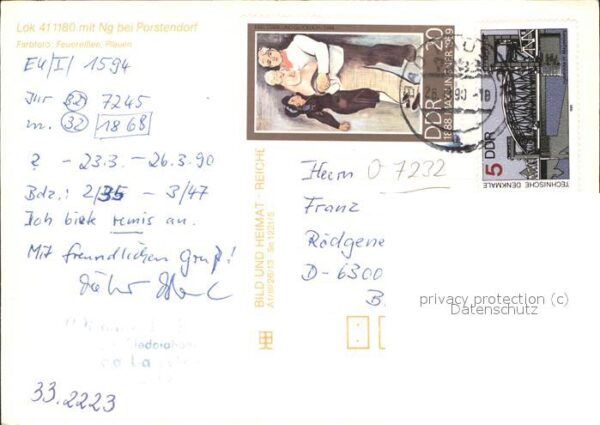 Lok 41 1180 mit Ng bei Porstendorf
Farbfoto: Feuereißen, Plauen
E4/I/ 1594
Ihr 32 7245
m. 32 1868
? - 23.3. - 26.3.90
Bdz.: 2/35 - 3/47
Ich biete remis an.
Mit freundlichen Gruß!
33.2223
BILD UND HEIMAT · REICHE
A1/III/26/13 So 1221/5
DDR 30
1888 MAX LINGNER 1959
26. 90 -18
5 DDR
TECHNISCHE DENKMALE
Herrn O 7232
Franz
Rödgene
D-6300
B
privacy protection (c)
Datenschutz